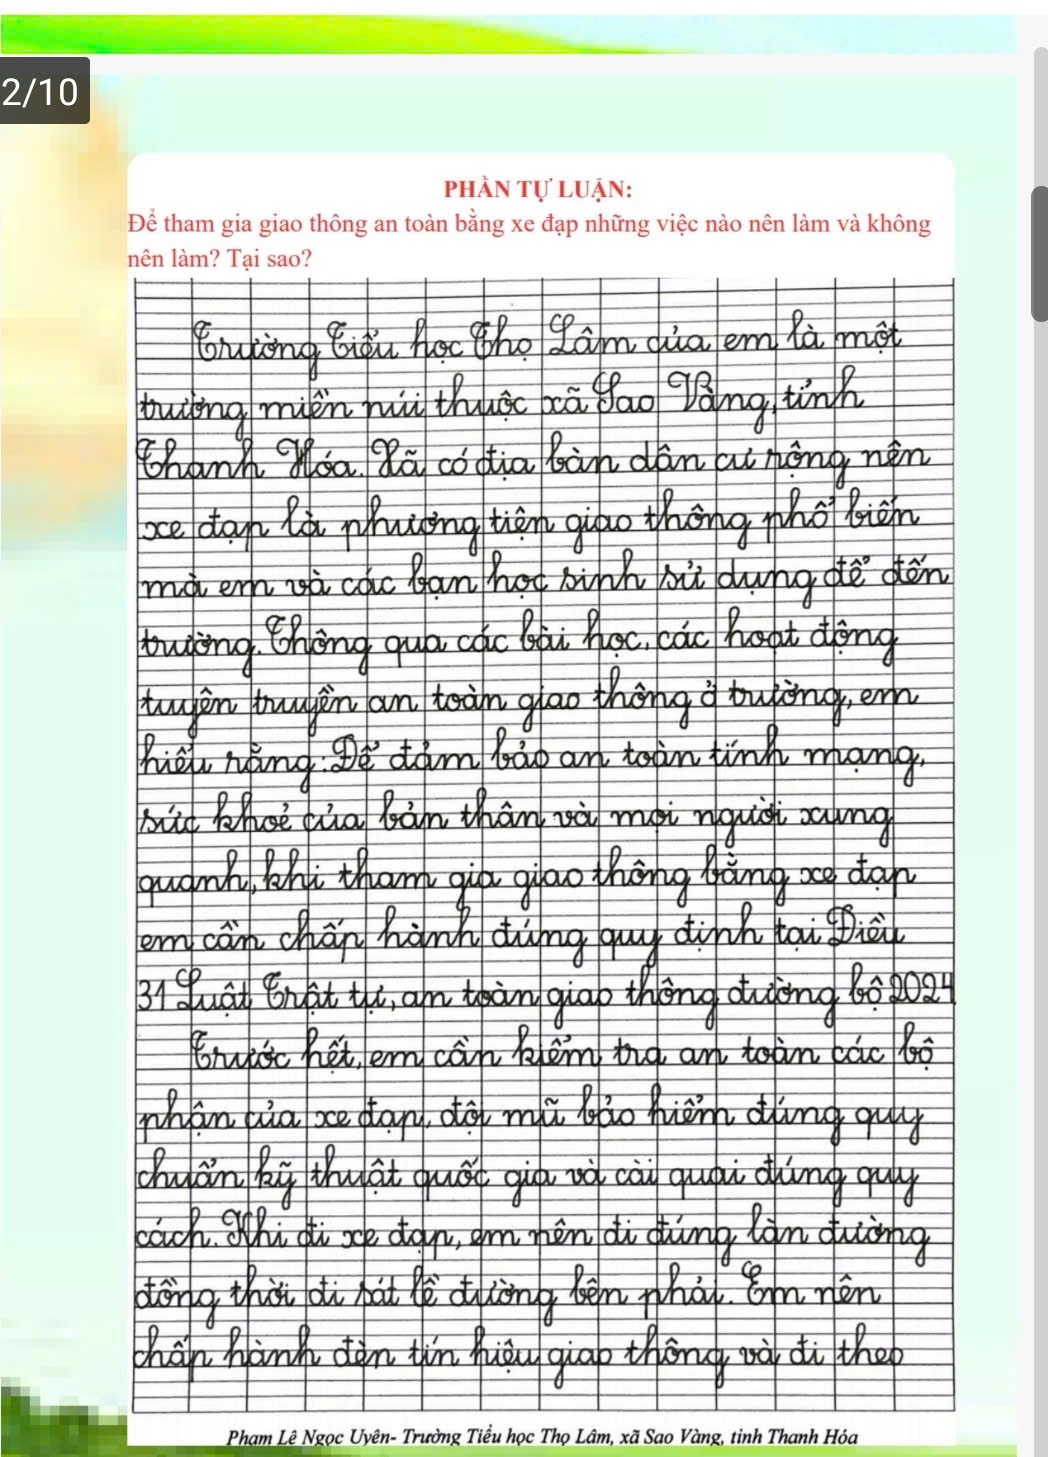 2/10
PHẦN TỰ LUẬN:
Để tham gia giao thông an toàn bằng xe đạp những việc nào nên làm và không
nên làm? Tại sao?
Trường Tiểu học Thọ Lâm của em là một
trường miền núi thuộc xã Sao Vàng, tỉnh
Thanh Hóa. Xã có địa bàn dân cư rộng nên
xe đạp là phương tiện giao thông phổ biến
mà em và các bạn học sinh sử dụng để đến
trường. Thông qua các bài học, các hoạt động
tuyên truyền an toàn giao thông ở trường, em
hiểu rằng: Để đảm bảo an toàn tính mạng,
sức khoẻ của bản thân và mọi người xung
quanh, khi tham gia giao thông bằng xe đạp
em cần chấp hành đúng quy định tại Điều
31 Luật Trật tự, an toàn giao thông đường bộ 2024
Trước hết, em cần kiểm tra an toàn các bộ
phận của xe đạp, đội mũ bảo hiểm đúng quy
chuẩn kỹ thuật quốc gia và cài quai đúng quy
cách. Khi đi xe đạp, em nên đi đúng làn đường
đồng thời đi sát lề đường bên phải. Em nên
chấp hành đèn tín hiệu giao thông và đi theo
Phạm Lê Ngọc Uyên- Trường Tiểu học Thọ Lâm, xã Sao Vàng, tỉnh Thanh Hóa